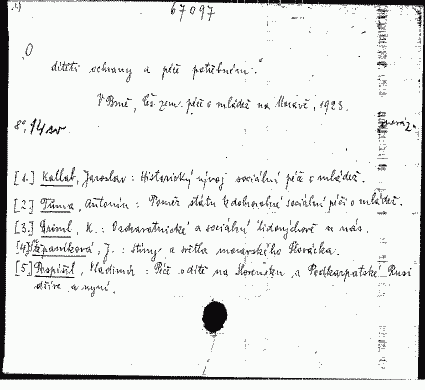 67097
„O
dítěti ochrany a péče potřebném."
V Brně, Čes. zem. péče o mládež na Moravě, 1923.
8°, 14 sv.
[1.] Kallab, Jaroslav: Historický vývoj sociální péče o mládež.
[2.] Tůma, Antonín: Poměr státu k dobrovolné sociální péči o mládež.
[3.] K.: Ozdravotnické a sociální lidovýchově u nás.
[4.] Štěpaníková, J.: Stíny a světla moravského Slovácka.
[5.] Pospíšil, Vladimír: Péče o dítě na Slovensku a Podkarpatské Rusi
dříve a nyní.